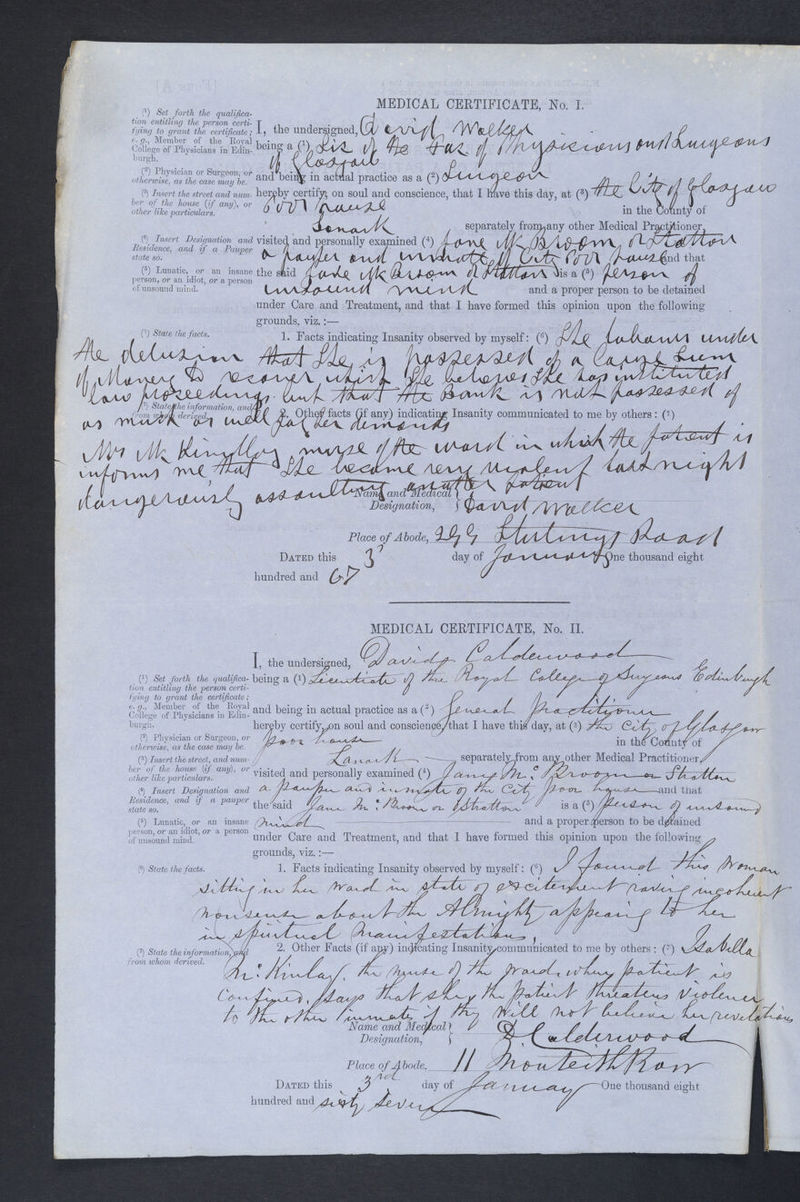 MEDICAL CERTIFICATE, No. I.
(1) Set forth the qualifica-
tion entitling the person certi-
fying to grant the certificate;
e. g., Member of the Royal
College of Physicians in Edin-
burgh.
(2) Physician or Surgeon, or
otherwise, as the case may be.
(3) Insert the street and num-
ber of the house (if any), or
other like particulars.
(4) Insert Designation and
Residence, and if a Pauper
state so.
(5) Lunatic, or an insane
person, or an idiot, or a person
of unsound mind.
(6) State the facts.
(7) State the information, and
from whom derived.
I, the undersigned, David Walker
being a (1) Lic of the Fac of Physicians and Surgeons
of Glasgow
and being in actual practice as a (2) Surgeon
hereby certify, on soul and conscience, that I have this day, at (3) the City of Glasgow
Poor house in the County of
Lanark separately from any other Medical Practitioner,
visited and personally examined (4) Jane Mc Broom or Stratton
a pauper and inmate of City Poor house and that
the said Jane Mc Broom or Stratton is a (5) person of
unsound mind and a proper person to be detained
under Care and Treatment, and that I have formed this opinion upon the following
grounds, viz.:—
1. Facts indicating Insanity observed by myself: (6) She labours under
the delusion that She is possessed of a large Sum
of Money to recover which She believes She has instituted
law proceedings but that the Bank is not possessed of
as much as will pay her demands
2. Other facts (if any) indicating Insanity communicated to me by others: (7)
Mrs Mc Kinlay nurse of the ward in which the patient is
informs me that She became very violent last night
dangerously assaulting another patient
Name and Medical Designation, David Walker
Place of Abode, 299 Stirlings Road
DATED this 3 day of January One thousand eight
hundred and 67
MEDICAL CERTIFICATE, No. II.
(1) Set forth the qualifica-
tion entitling the person certi-
fying to grant the certificate;
e. g., Member of the Royal
College of Physicians in Edin-
burgh.
(2) Physician or Surgeon, or
otherwise, as the case may be.
(3) Insert the street, and num-
ber of the house (if any), or
other like particulars.
(4) Insert Designation and
Residence, and if a pauper
state so.
(5) Lunatic, or an insane
person, or an idiot, or a person
of unsound mind.
(6) State the facts.
(7) State the information, and
from whom derived.
I, the undersigned, David Calderwood
being a (1) Licentiate of the Royal College of Surgeons Edinburgh
and being in actual practice as a (2) General Practitioner
hereby certify, on soul and conscience, that I have this day, at (3) the City of Glasgow
poor house in the County of
Lanark separately from any other Medical Practitioner,
visited and personally examined (4) Jane Mc Broom or Stratton
a pauper and inmate of the City poor house and that
the said Jane Mc Broom or Stratton is a (5) person of unsound
mind and a proper person to be detained
under Care and Treatment, and that I have formed this opinion upon the following
grounds, viz.:—
1. Facts indicating Insanity observed by myself: (6) I found this Woman
sitting in her ward in state of excitement raving incoherent
nonsense about the Almighty appearing to her
in spiritual manifestations.
2. Other Facts (if any) indicating Insanity communicated to me by others: (7) Isabella
Mc Kinlay, the nurse of the ward where patient is
confined, says that she, the patient threatens violence
to the other inmates if they will not believe her revelations
Name and Medical Designation, D Calderwood
Place of Abode, 11 Monteith Row
DATED this 3rd day of January One thousand eight
hundred and sixty seven